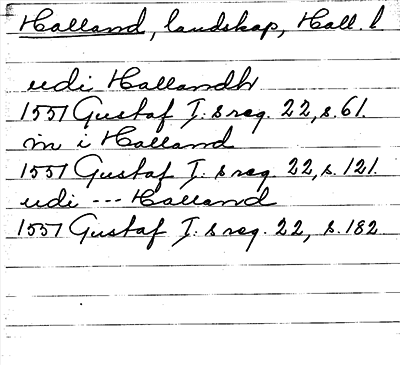 Halland, landskap, Hall. l
udi Hallandh
1551 Gustaf I:s reg. 22, s. 61.
in i Halland
1551 Gustaf I:s reg. 22, s. 121.
udi --- Halland
1551 Gustaf I:s reg. 22, s. 182